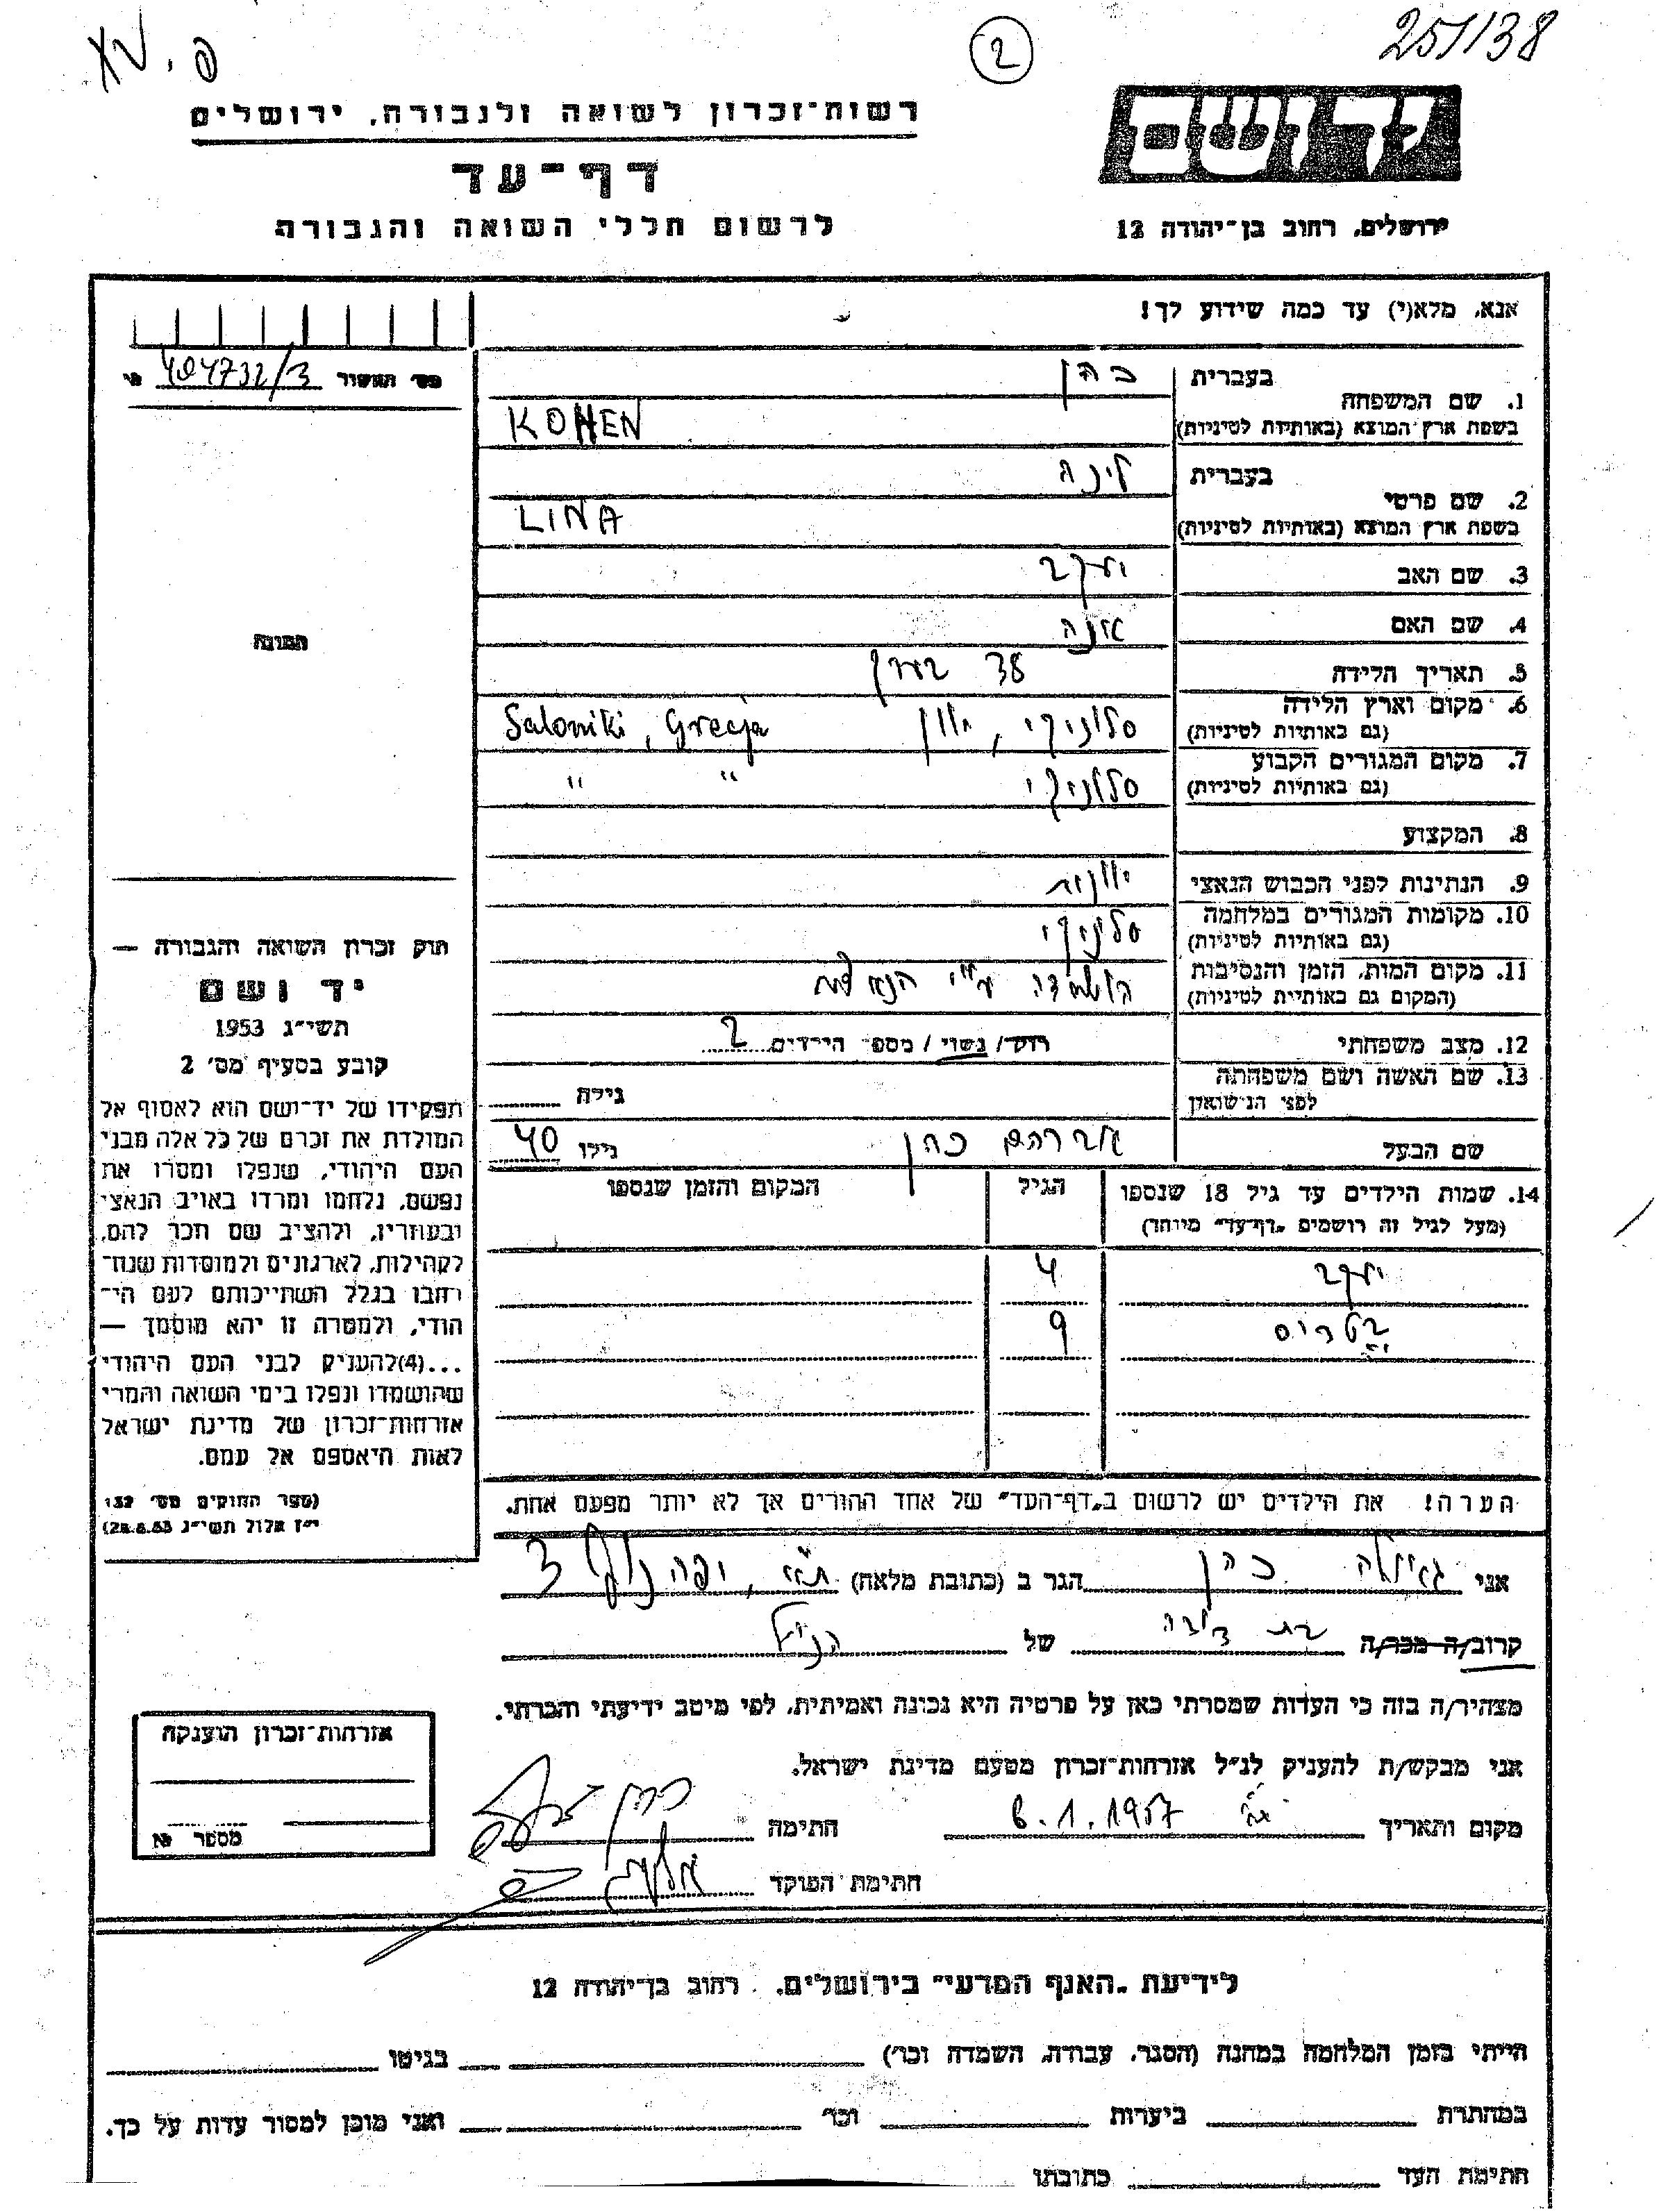 XV. פ
2
251138
יד ושם
רשות־זכרון לשואה ולגבורה, ירושלים
דף־עד
לרשום חללי השואה והגבורה
ירושלים, רחוב בן־יהודה 12
אנא, מלא(י) עד כמה שידוע לך!
מס' תאשור 404732/3
1. שם המשפחה
בעברית כהן
בשפת ארץ המוצא (באותיות לטיניות) KOHEN
2. שם פרטי
בעברית לינה
בשפת ארץ המוצא (באותיות לטיניות) LINA
3. שם האב יעקב
4. שם האם אנה
תמונה
5. תאריך הלידה 38 בערך
6. מקום וארץ הלידה
(גם באותיות לטיניות) סלוניקי, יוון Saloniki, Grecja
7. מקום המגורים הקבוע
(גם באותיות לטיניות) סלוניקי " "
8. המקצוע
9. הנתינות לפני הכבוש הנאצי יוונית
10. מקומות המגורים במלחמה
(גם באותיות לטיניות) סלוניקי
11. מקום המות, הזמן והנסיבות
(המקום גם באותיות לטיניות) הושמדה ע"י הנאצים
12. מצב משפחתי רווק / נשוי / מספר הילדים 2
13. שם האשה ושם משפחתה
לפני הנישואין גילה
שם הבעל אברהם כהן גילו 40
14. שמות הילדים עד גיל 18 שנספו הגיל המקום והזמן שנספו
(מעל לגיל זה רושמים „דף־עד" מיוחד)
יעקב 4
9
הערה! את הילדים יש לרשום ב„דף־העד" של אחד ההורים אך לא יותר מפעם אחת.
חוק זכרון השואה והגבורה —
יד ושם
תשי"ג 1953
קובע בסעיף מס' 2
תפקידו של יד־ושם הוא לאסוף אל
המולדת את זכרם של כל אלה מבני
העם היהודי, שנפלו ומסרו את
נפשם, נלחמו ומרדו באויב הנאצי
ובעוזריו, ולהציב שם וזכר להם,
לקהילות, לארגונים ולמוסדות שנח־
רבו בגלל השתייכותם לעם הי־
הודי, ולמטרה זו יהא מוסמך —
...(4)להעניק לבני העם היהודי
שהושמדו ונפלו בימי השואה והמרי
אזרחות־זכרון של מדינת ישראל
לאות היאספם אל עמם.
(ספר החוקים מס' 132
י"ז אלול תשי"ג 28.8.53)
אני כהן הגר ב (כתובת מלאה) ת"א, 3
קרוב/ה מכר/ה בת דודה של הנ"ל
מצהיר/ה בזה כי העדות שמסרתי כאן על פרטיה היא נכונה ואמיתית, לפי מיטב ידיעתי והכרתי.
אני מבקש/ת להעניק לנ"ל אזרחות־זכרון מטעם מדינת ישראל.
מקום ותאריך ת"א 6.1.1957 חתימה כהן
חתימת הפוקד
אזרחות־זכרון הוענקה
מספר №
לידיעת „האגף המדעי" בירושלים. רחוב בן־יהודה 12
הייתי בזמן המלחמה במחנה (הסגר, עבודה, השמדה וכו') בגיטו
במחתרת ביערות וכו' ואני מוכן למסור עדות על כך.
חתימת העד כתובתו